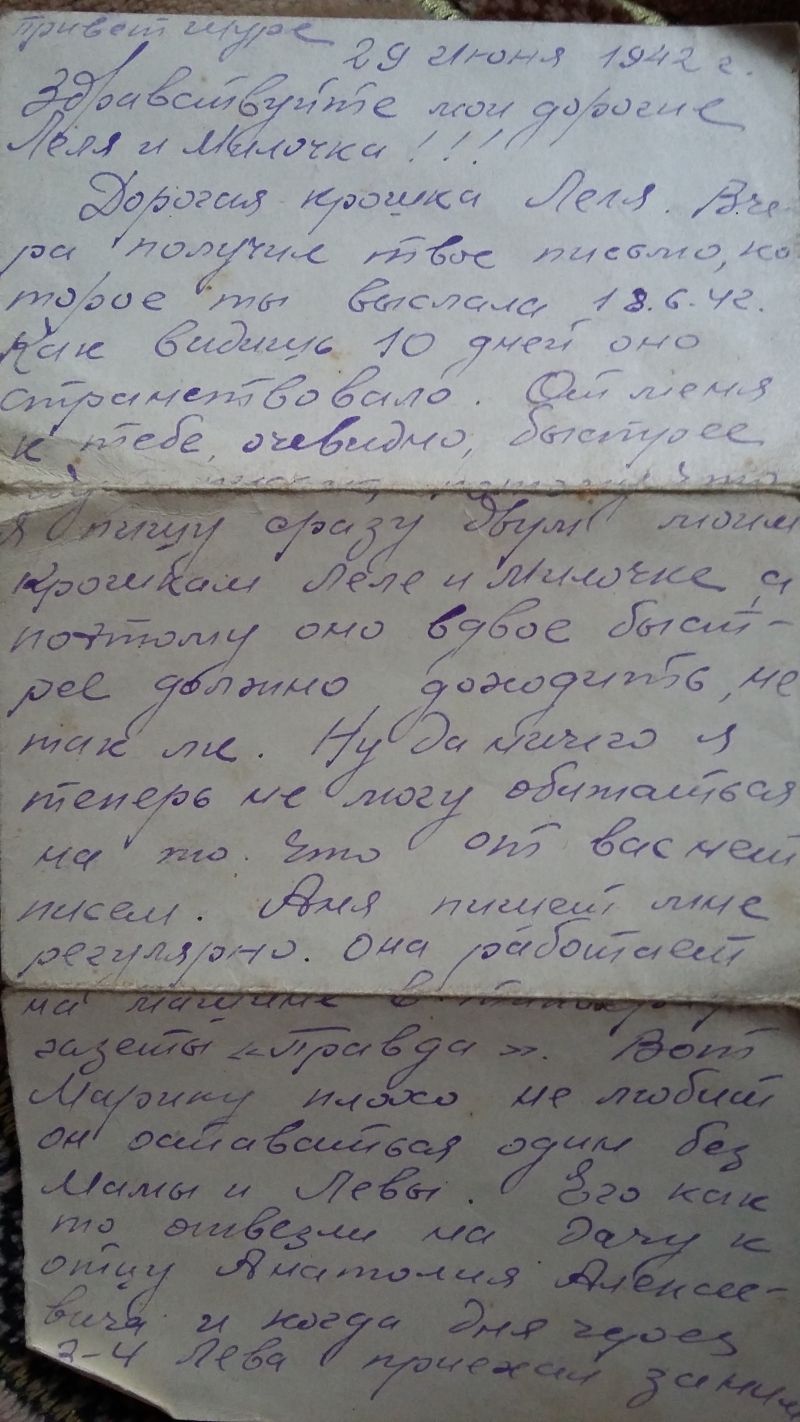 привет Шуре
29 июня 1942 г.
Здравствуйте мои дорогие
Леля и Милочка!!!
Дорогая крошка Леля. Вче-
ра получил твое письмо, ко
торое ты выслала 18.6.42.
Как видишь 10 дней оно
странствовало. От меня
к тебе, очевидно, быстрее
потому что
я пишу сразу двум моим
крошкам Леле и Милочке, а
поэтому оно вдвое быст-
рее должно доходить, не
так ли. Ну да ничего я
теперь не могу обижаться
на то. что от вас нет
писем. Аня пишет мне
регулярно. Она работает
на машине в
газеты «Правда». Вот
Марику плохо не любит
он оставаться один без
Мамы и Левы. Его как
то отвезли на дачу к
отцу Анатолия Алексее-
вича и когда дня через
3-4 Лева приехал за ним